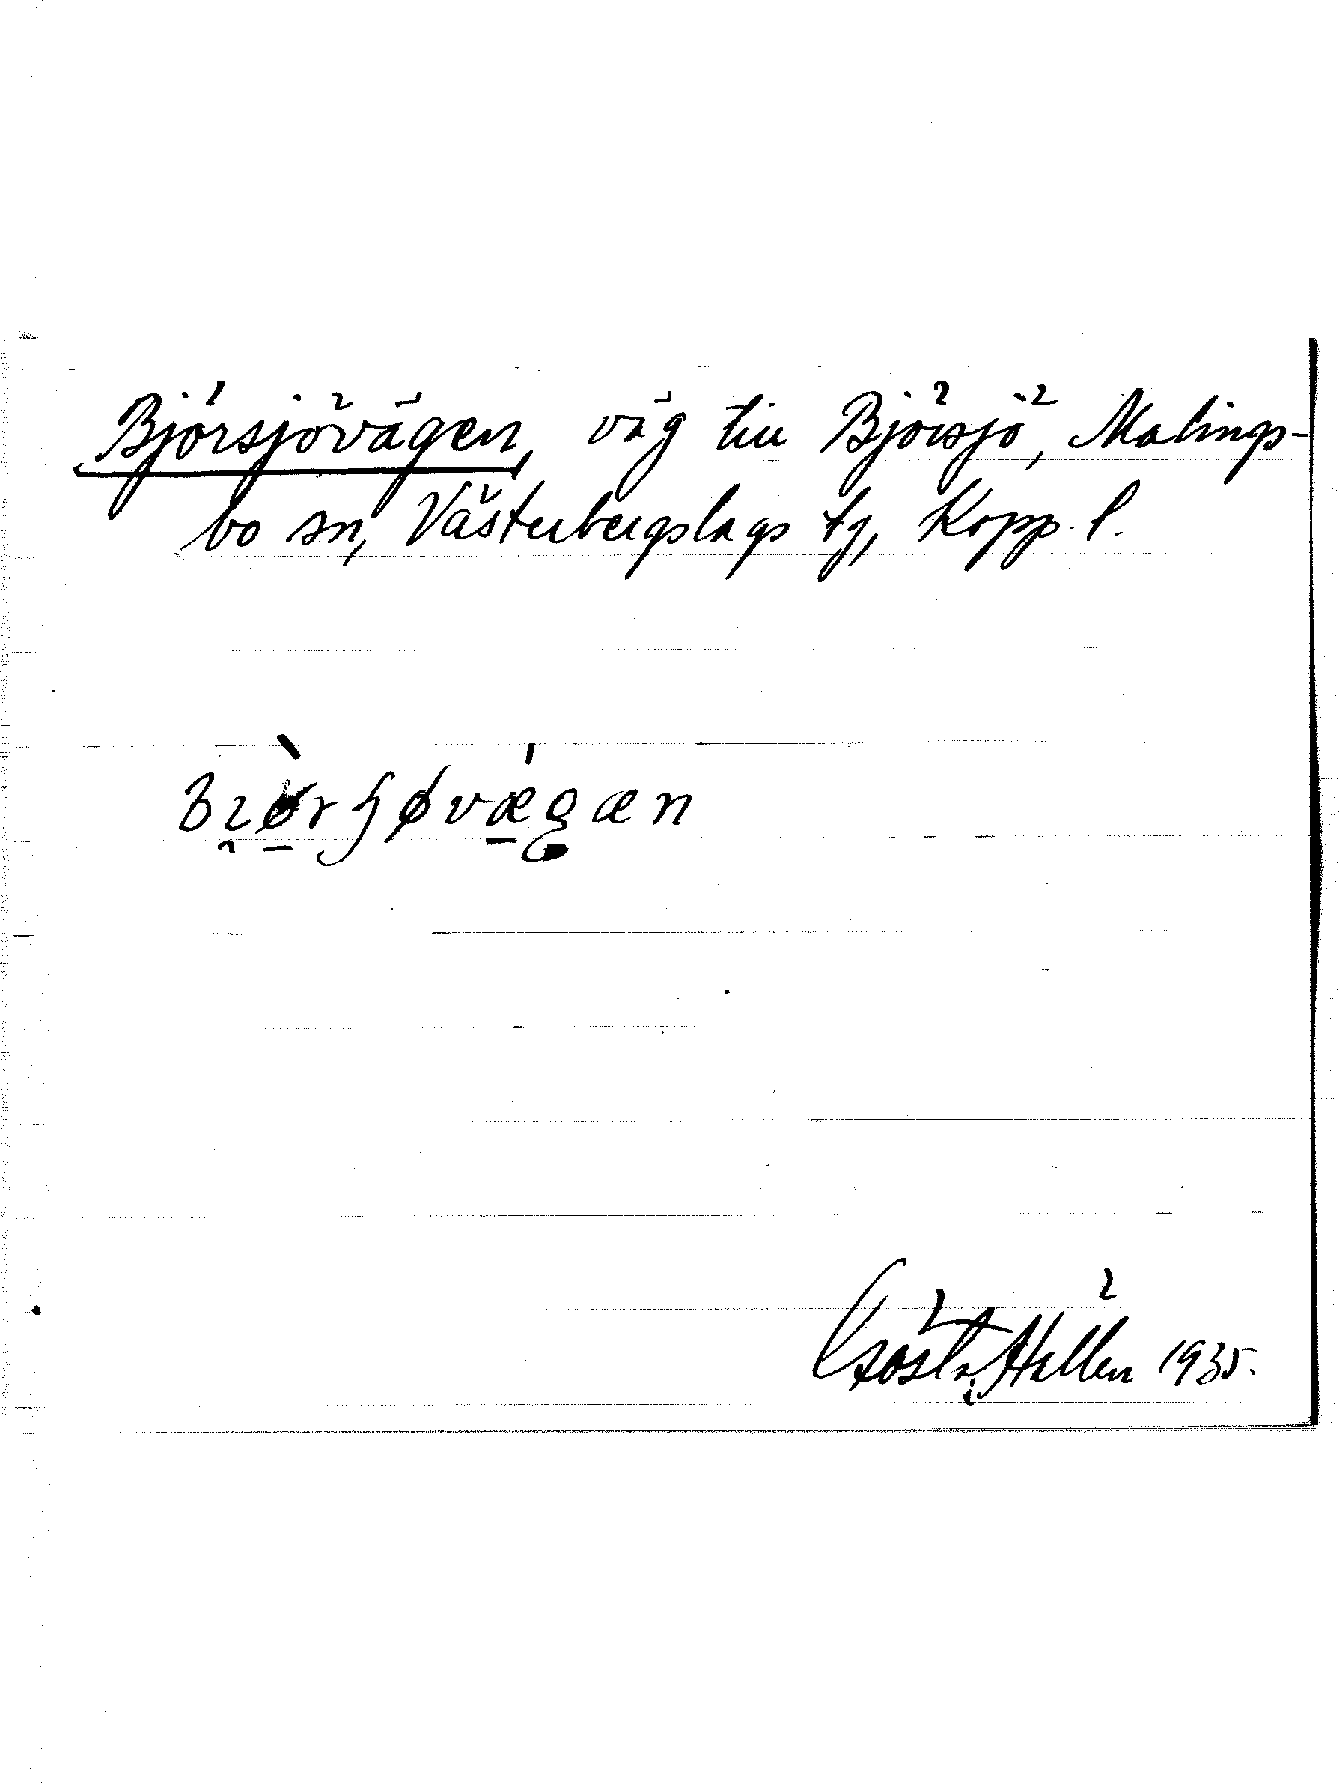 Björsjövägen, väg till Björsjö, Malings-
bo sn, Västerbergslags tg, Kopp. l.
Gösta Hallén 1935.